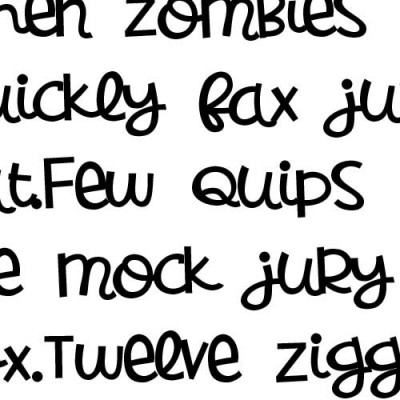 hen zombies
uickly fax ju
t.Few quips
e mock jury
x.Twelve zigg